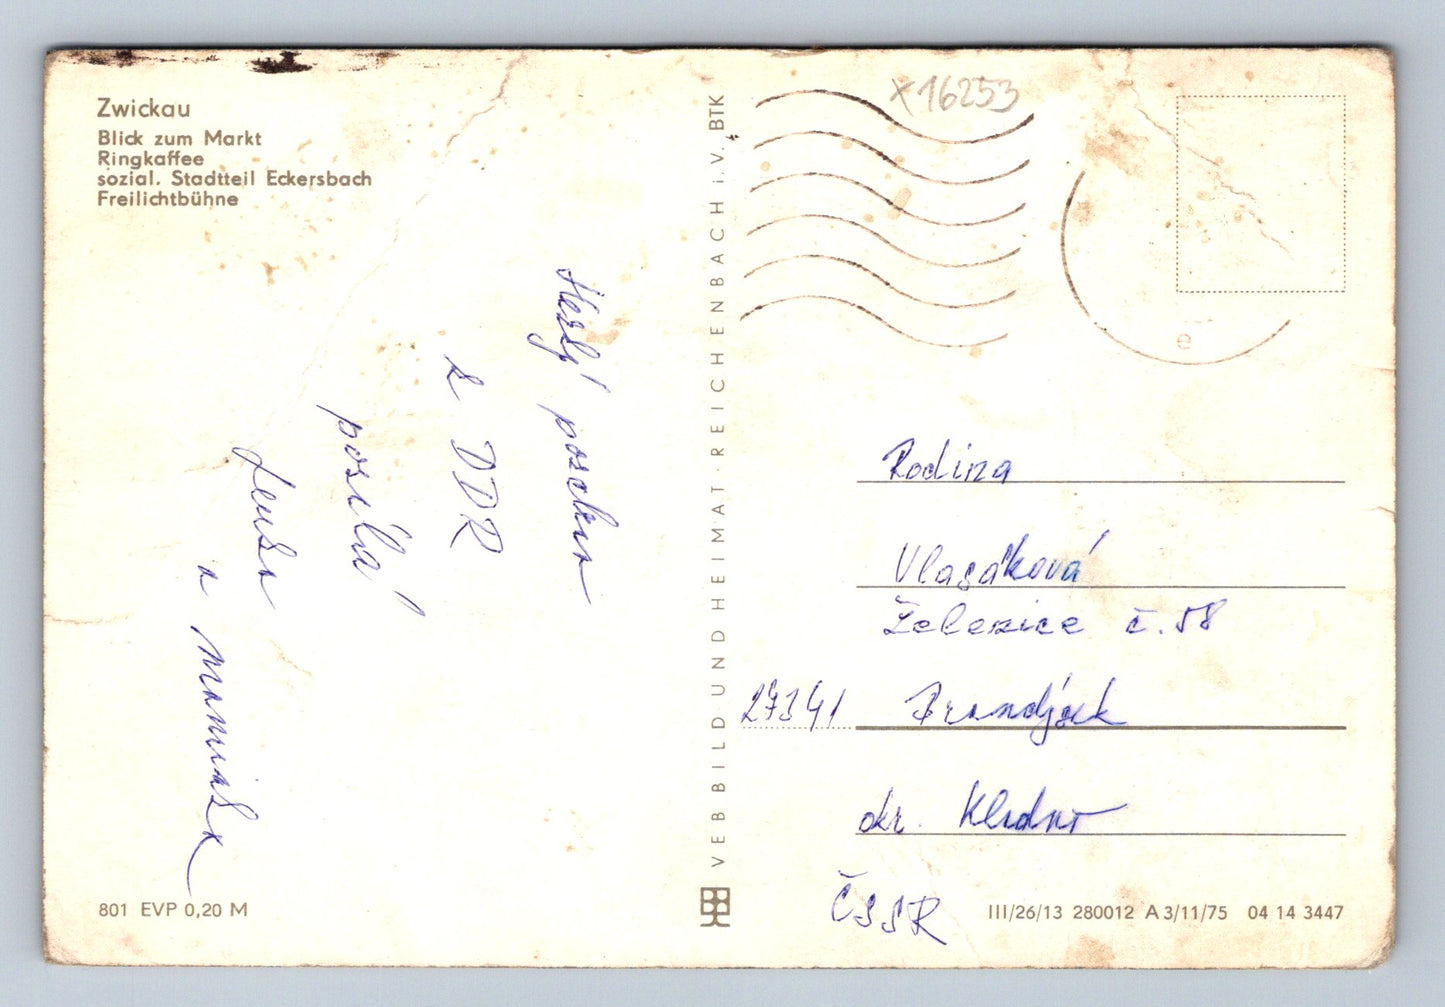 Zwickau
Blick zum Markt
Ringkaffee
sozial. Stadtteil Eckersbach
Freilichtbühne
x16253
Hezký pozdrav
z DDR
posílá
Lenka
a maminka
VEB BILD UND HEIMAT · REICHENBACH i. V. BTK
e
Rodina
Vlasáková
Železice č. 58
27341 Brandýsek
okr. Kladno
ČSSR
801 EVP 0,20 M
III/26/13 280012 A 3/11/75 04 14 3447